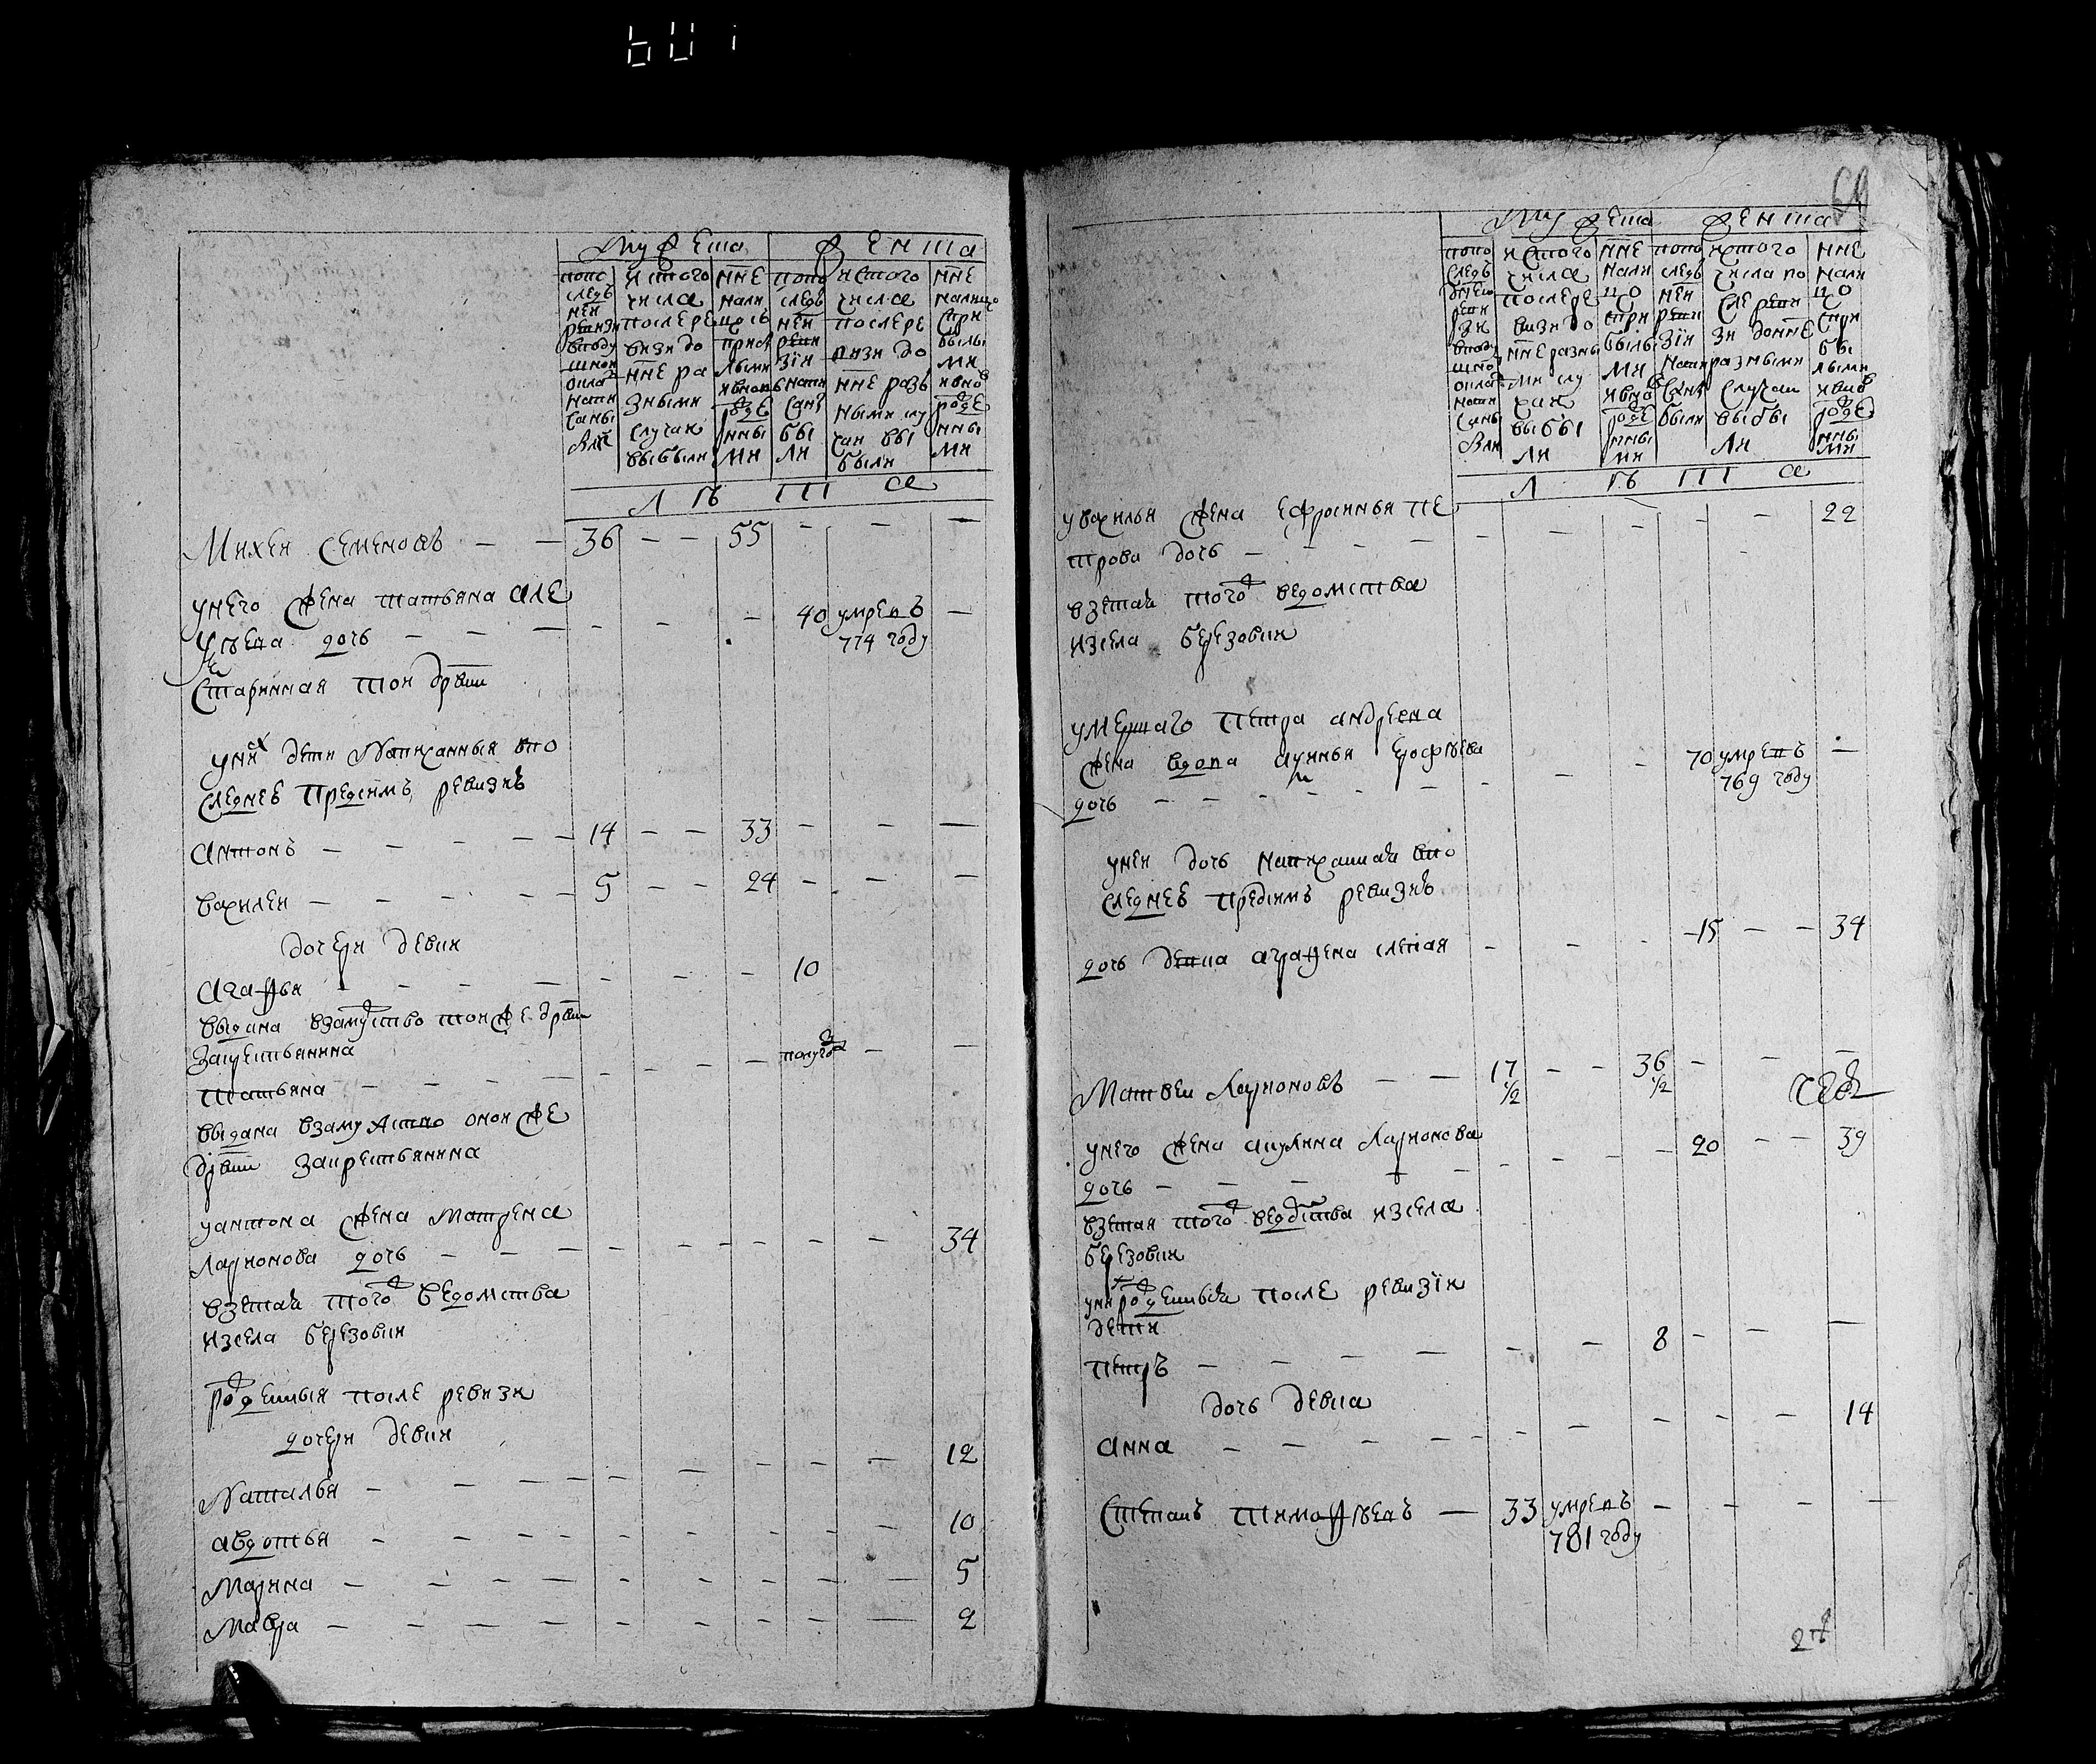 Мужеска
Женска
попо следъ ней ревизи вподушной окладъ написаны были
и стого числа после ревизи до нне разными случаи выбыли
нне налицо сприбылыми и вновь рожденными
попо следъ ней ревизіи написаны были
и стого числа после ревизи до нне разными случаи выбыли
нне налицо сприбылыми и вновь рожденными
лѣта
Михей Семеновъ — — 36 — — 55 — — —
у него жена татьяна але — — — 40 умреть —
ѯѣева дочь — — — 774 году
Старинная той дрвни
у них дети написанныя впо
следнеѣ предсимъ ревизиѣ
Антонъ — — — — — 14 — — 33 — — —
василей — — — — — 5 — — 24 — — —
дочери девки
Агафья — — — — — — — 10
выдана взамуство тойже дрвни
закрестьянина
татьяна — — — — — — — полугода — —
выдана взамужство оной же
дрвни закрестьянина
у антона жена матрена
Ларионова дочь — — — — — — — — 34
взетай тогож ведомства
изсела березовки
рожденныя после ревизи
дочери девки
Наталья — — — — — — — — — 12
авдотья — — — — — — — — 10
Марина — — — — — — — — — 5
Мавра — — — — — — — — — 2
Мужеска
Женска
попо следъ ней ревизи вподушной окладъ написаны были
и стого числа после ревизи до нне разными случаи выбыли
нне налицо сприбылыми и вновь рожденными
попо следъ ней ревизіи написаны были
и стого числа после ревизи донне разными случаи выбыли
нне налицо сприбылыми и вновь рожденными
лѣта
у василья жена ефросинья пе — — — — — 22
трова дочь — — — —
взетай тогож ведомства
изсела березовки
умершаго петра андреева
жена вдова аксинья ерофѣева — — — 70 умреть —
дочь — — — — — — 769 году
у ней дочь написанная впо
следнеѣ предсимъ ревизиѣ
дочь девка аграфена слепая — — — 15 — — 34
Матвей Ларионовъ — — 17 1/2 — — 36 1/2 — — —
у него жена акулина Ларионова — — — — 20 — — 39
дочь — — — —
взетая тогож ведомства изсела
березовки
у них рожденныя после ревизіи
дети
петръ — — — — — — 8 — — —
дочь девка
анна — — — — — — — — — — 14
Степанъ тимофѣевъ — 33 умреть — — — —
781 году